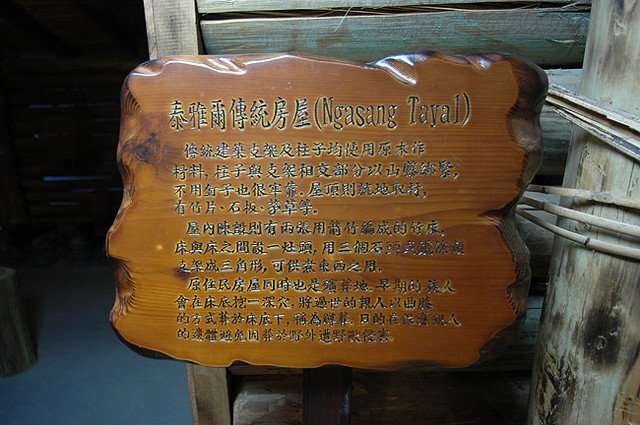 泰雅爾傳統房屋(Ngasang Tayal)
傳統建築支架及柱子均使用原木作
材料,柱子與支架相交部分以山藤綁緊,
不用釘子也很牢靠.屋頂則就地取材,
有竹片.石板.茅草等.
屋內陳設則有兩張用箭竹編成的竹床,
床與床之間設一灶頭,用三個石頭或鐵條類
支架成三角形,可供煮東西之用.
原住民房屋同時也是殯葬地.早期的族人
會在床底挖一深穴.將過世的親人以曲膝
的方式葬於床底下,稱為蹲葬.目的在保護親人
的遺體避免因葬於野外遭野獸侵害.